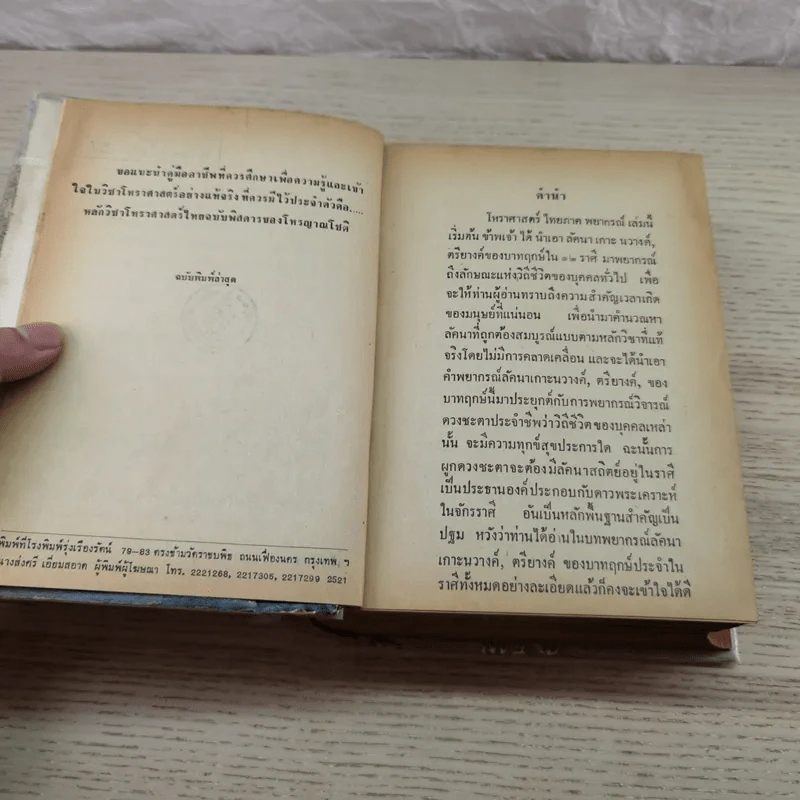 ขอแนะนำคู่มืออาชีพที่ควรศึกษาเพื่อความรู้และเข้า
ใจในวิชาโหราศาสตร์อย่างแท้จริง ที่ควรมีไว้ประจำตัวคือ.....
หลักวิชาโหราศาสตร์ไทยฉบับพิสดารของโหรญาณโชติ
ฉบับพิมพ์ล่าสุด
พิมพ์ที่โรงพิมพ์รุ่งเรืองรัตน์ 79–83 ตรงข้ามวัดราชบพิธ ถนนเฟื่องนคร กรุงเทพ ฯ
นางส่งศรี เอี่ยมสอาด ผู้พิมพ์ผู้โฆษณา โทร. 2221268, 2217305, 2217299 2521
คำนำ
โหราศาสตร์ ไทยภาค พยากรณ์ เล่มนี้
เริ่มต้น ข้าพเจ้า ได้ นำเอา ลัคนา เกาะ นวางค์,
ตรียางค์ของบาทฤกษ์ใน ๑๒ ราศี มาพยากรณ์
ถึงลักษณะแห่งวิถีชีวิตของบุคคลทั่วไป เพื่อ
จะให้ท่านผู้อ่านทราบถึงความสำคัญเวลาเกิด
ของมนุษย์ที่แน่นอน เพื่อนำมาคำนวณหา
ลัคนาที่ถูกต้องสมบูรณ์แบบตามหลักวิชาที่แท้
จริงโดยไม่มีการคลาดเคลื่อน และจะได้นำเอา
คำพยากรณ์ลัคนาเกาะนวางค์, ตรียางค์, ของ
บาทฤกษ์นี้มาประยุกต์กับการพยากรณ์วิจารณ์
ดวงชะตาประจำชีพว่าวิถีชีวิตของบุคคลเหล่า
นั้น จะมีความทุกข์สุขประการใด ฉะนั้นการ
ผูกดวงชะตาจะต้องมีลัคนาสถิตย์อยู่ในราศี
เป็นประธานองค์ประกอบกับดาวพระเคราะห์
ในจักรราศี อันเป็นหลักพื้นฐานสำคัญเป็น
ปฐม หวังว่าท่านได้อ่านในบทพยากรณ์ลัคนา
เกาะนวางค์, ตรียางค์ ของบาทฤกษ์ประจำใน
ราศีทั้งหมดอย่างละเอียดแล้วก็คงจะเข้าใจได้ดี